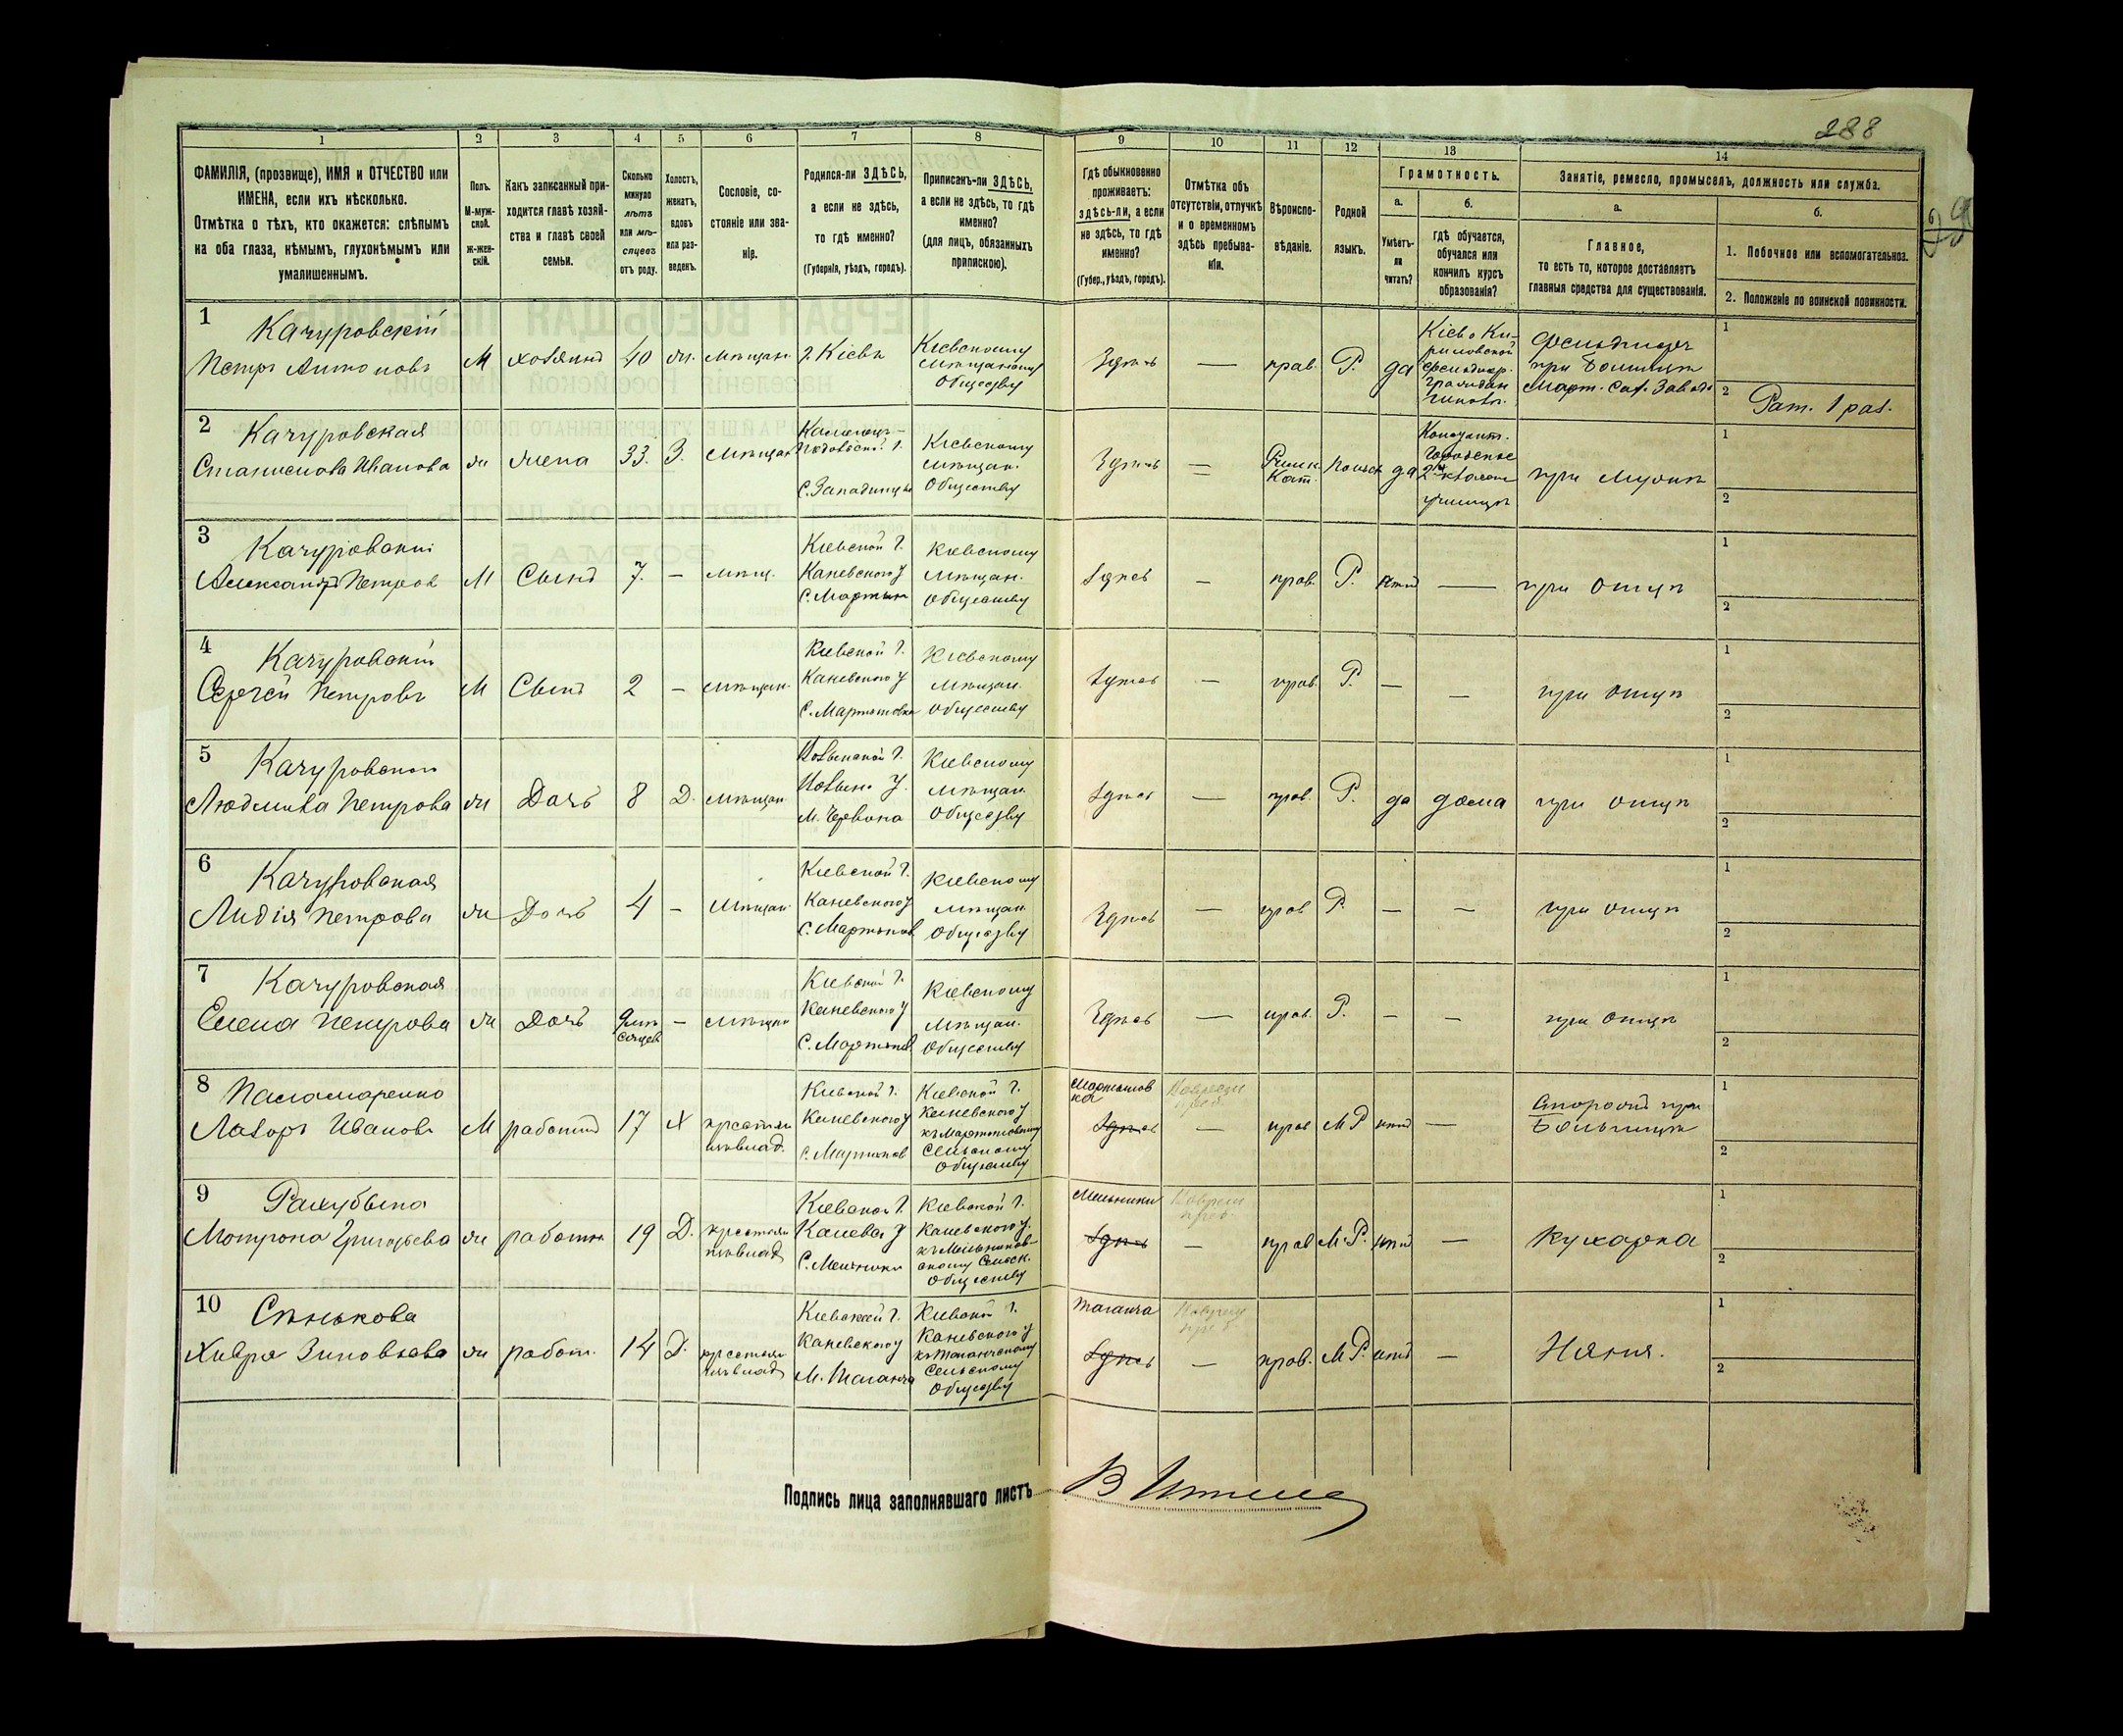 288
1
2
3
4
5
6
7
8
9
10
11
12
13
14
ФАМИЛІЯ, (прозвище), ИМЯ и ОТЧЕСТВО или
ИМЕНА, если ихъ нѣсколько.
Отмѣтка о тѣхъ, кто окажется: слѣпымъ
на оба глаза, нѣмымъ, глухонѣмымъ или
умалишеннымъ.
Полъ.
М-муж-
ской.
Ж-жен-
скій.
Какъ записанный при-
ходится главѣ хозяй-
ства и главѣ своей
семьи.
Сколько
минуло
лѣтъ
или мѣ-
сяцевъ
отъ роду.
Холостъ,
женатъ,
вдовъ
или раз-
веденъ.
Сословіе, со-
стояніе или зва-
ніе.
Родился-ли ЗДѢСЬ,
а если не здѣсь,
то гдѣ именно?
(Губернія, уѣздъ, городъ).
Приписанъ-ли ЗДѢСЬ,
а если не здѣсь, то гдѣ
именно?
(для лицъ, обязанныхъ
припискою).
Гдѣ обыкновенно
проживаетъ:
здѣсь-ли, а если
не здѣсь, то гдѣ
именно?
(Губер., уѣздъ, городъ).
Отмѣтка объ
отсутствіи, отлучкѣ
и о временномъ
здѣсь пребыва-
ніи.
Вѣроиспо-
вѣданіе.
Родной
языкъ.
Грамотность.
а.
Умѣетъ-
ли
читать?
б.
гдѣ обучается,
обучался или
кончилъ курсъ
образованія?
Занятіе, ремесло, промыселъ, должность или служба.
а.
Главное,
то есть то, которое доставляетъ
главныя средства для существованія.
б.
1. Побочное или вспомогательное.
2. Положеніе по воинской повинности.
1
Качуровскій
Петръ Антоновъ
М
хозяинъ
40
ж.
мѣщан.
г. Кіевъ
Кіевскому
мѣщанскому
обществу
Здѣсь
—
прав.
Р.
да
Кіево Ки-
риловской
фельдшер.
при больницѣ
Март. Сах. Завода
1
2
Рат. 1 раз.
2
Качуровская
Станислава Иванова
ж
жена
33.
З.
мѣщан
Каменецъ-
Подольск. г.
Кіевскому
мѣщан.
обществу
Здѣсь
—
Римк.
Кат.
польск
да
училищѣ
при мужѣ
1
2
3
Качуровскій
Александръ Петров
М
Сынъ
7.
–
мѣщ.
Кіевской г.
Каневского у
Кіевскому
мѣщан.
обществу
Здѣсь
–
прав.
Р.
нѣтъ
—
при отцѣ
1
2
4
Качуровскій
Сергѣй Петровъ
М
Сынъ
2
–
мѣщан.
Кіевской г.
Каневского у
С. Мартыновка
Кіевскому
мѣщан.
обществу
Здѣсь
–
прав.
Р.
–
–
при отцѣ
1
2
5
Качуровская
Людмила Петрова
ж
Дочь
8
Д.
мѣщан
М. Червоно
Кіевскому
мѣщан.
обществу
Здѣсь
—
прав.
Р.
да
дома
при отцѣ
1
2
6
Качуровская
Лидія Петрова
ж
Дочь
4
–
мѣщан
Кіевской г.
Каневского у
С. Мартынов
Кіевскому
мѣщан.
обществу
Здѣсь
—
прав
Р.
–
–
при отцѣ
1
2
7
Качуровская
Елена Петрова
ж
Дочь
9 мѣ-
сяцев
–
мѣщан
Кіевской г.
Каневского у
С. Мартынов
Кіевскому
мѣщан.
обществу
Здѣсь
—
прав.
Р.
–
–
при отцѣ
1
2
8
Паламаренко
Лазоръ Иванов
М
работник
17
Х
Кіевской г.
Каневского у
С. Мартынов
Кіевской г.
Каневского у
къ Мартыновскому
Сельскому
обществу
Мартынов
ка
Здѣсь
—
прав
М Р
нѣтъ
—
Сторожъ при
больницѣ
1
2
9
Мотрона Григорьева
ж
работн
19
Д.
Кіевской г.
Каневск у
С. Мельники
Кіевской г.
Каневского у.
къ Мельников-
скому Сельск.
обществу
Мельники
Здѣсь
—
прав
М. Р.
нѣтъ
—
Кухарка
1
2
10
Сѣнькова
Хивря Зиновьева
ж
работ.
14
Д.
Кіевской г.
Каневского у
М. Таганча
Кіевской г.
Каневского у
къ Таганчскому
Сельскому
обществу
Таганча
Здѣсь
—
прав.
М Р.
нѣтъ
—
Няня.
1
2
Подпись лица заполнявшаго листъ